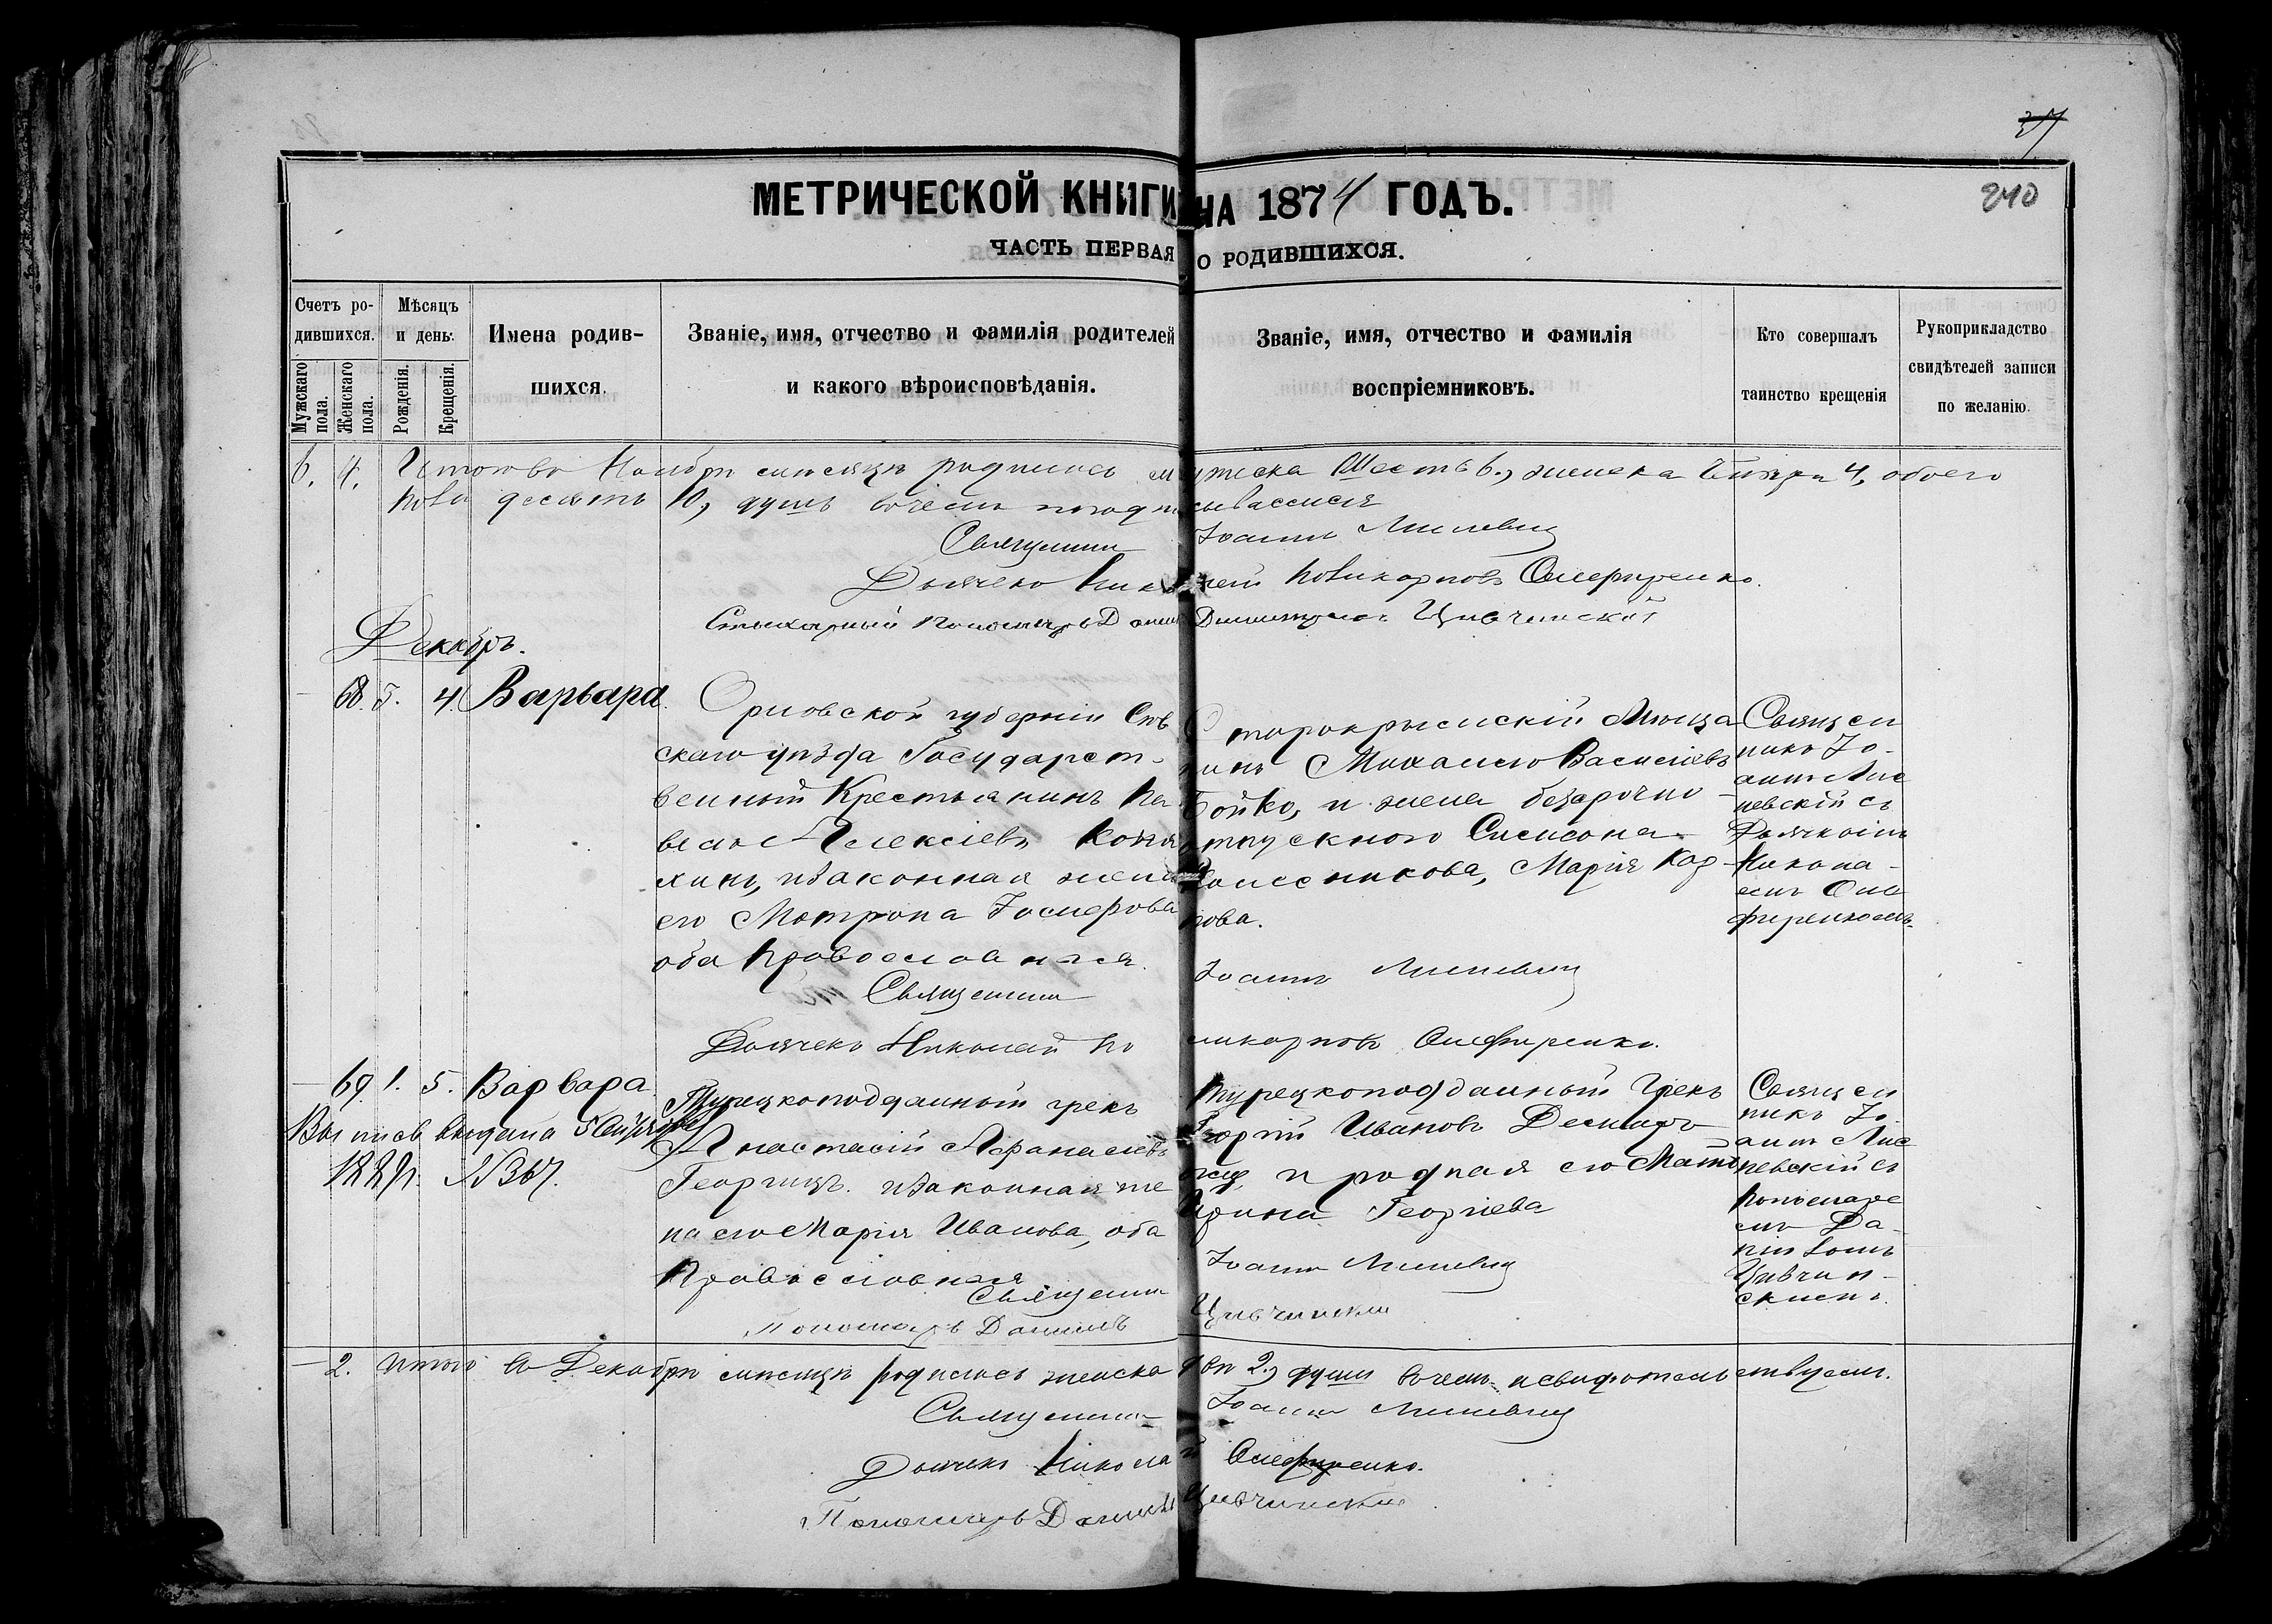 37
240
МЕТРИЧЕСКОЙ КНИГИ НА 1874 ГОДЪ.
ЧАСТЬ ПЕРВАЯ О РОДИВШИХСЯ.
Счетъ ро-
дившихся.
Мужскаго пола.
Женскаго пола.
Мѣсяцъ
и день.
Рожденія.
Крещенія.
Имена родив-
шихся.
Званіе, имя, отчество и фамилія родителей
и какого вѣроисповѣданія.
Званіе, имя, отчество и фамилія
воспріемниковъ.
Кто совершалъ
таинство крещенія
Рукоприкладство
свидѣтелей записи
по желанію.
6. 4. Итого во Ноябрѣ мѣсяцѣ родилось мужеска Шесть 6., женска Четыри 4, обоего
пола десять 10, душъ вчемъ
Священник Іоаннъ
Дьячекъ Николай Поликарповъ Олефиренко.
Стихарный Пономарь Данiилъ Цивчинский
Декабрь.
— 68. 4. Варвара
Орловской губерніи Сѣв
скаго уѣзда Государст-
венный Крестьянинъ Па
велъ Алексіевъ
хинъ, изаконная жена
его Мотрона Іосифова
оба Православныя.
Старокрымскій Мѣща
нинъ Михаилъ Василіевъ
Бойко, и жена безсрочно-
отпускного Симеона
Колесникова, Марія Кар-
пова.
Священ
никъ Іо-
аннъ
невскій съ
Дьячкомъ
Никола-
емъ Оле
фиренкомъ.
Священник Іоаннъ
Дьячекъ Николай Поликарповъ Олефиренко.
— 69 1. 5. Варвара
Выпись выдана
№367.
Турецкоподданный грекъ
Анастасій Афанасіевъ
Георгицъ. изаконная же
на его Марія Иванова, оба
Православныя
Турецкоподданный Грекъ
Георгій Ивановъ
и родная его Мать
Ирина Георгіева
Священ
никъ Іо
аннъ
невскій съ
Пономаре
емъ Да-
ніиломъ
Цивчин-
скимъ.
Священник Іоаннъ
Пономарь Даніилъ Цивчинский
— 2. Итого въ Декабрѣ мѣсяцѣ родилось женска двѣ 2, души вчемъ исвидѣтельствуемъ.
Священник Іоаннъ
Дьячекъ Николай Олефиренко.
Пономарь Даніилъ Цивчинский